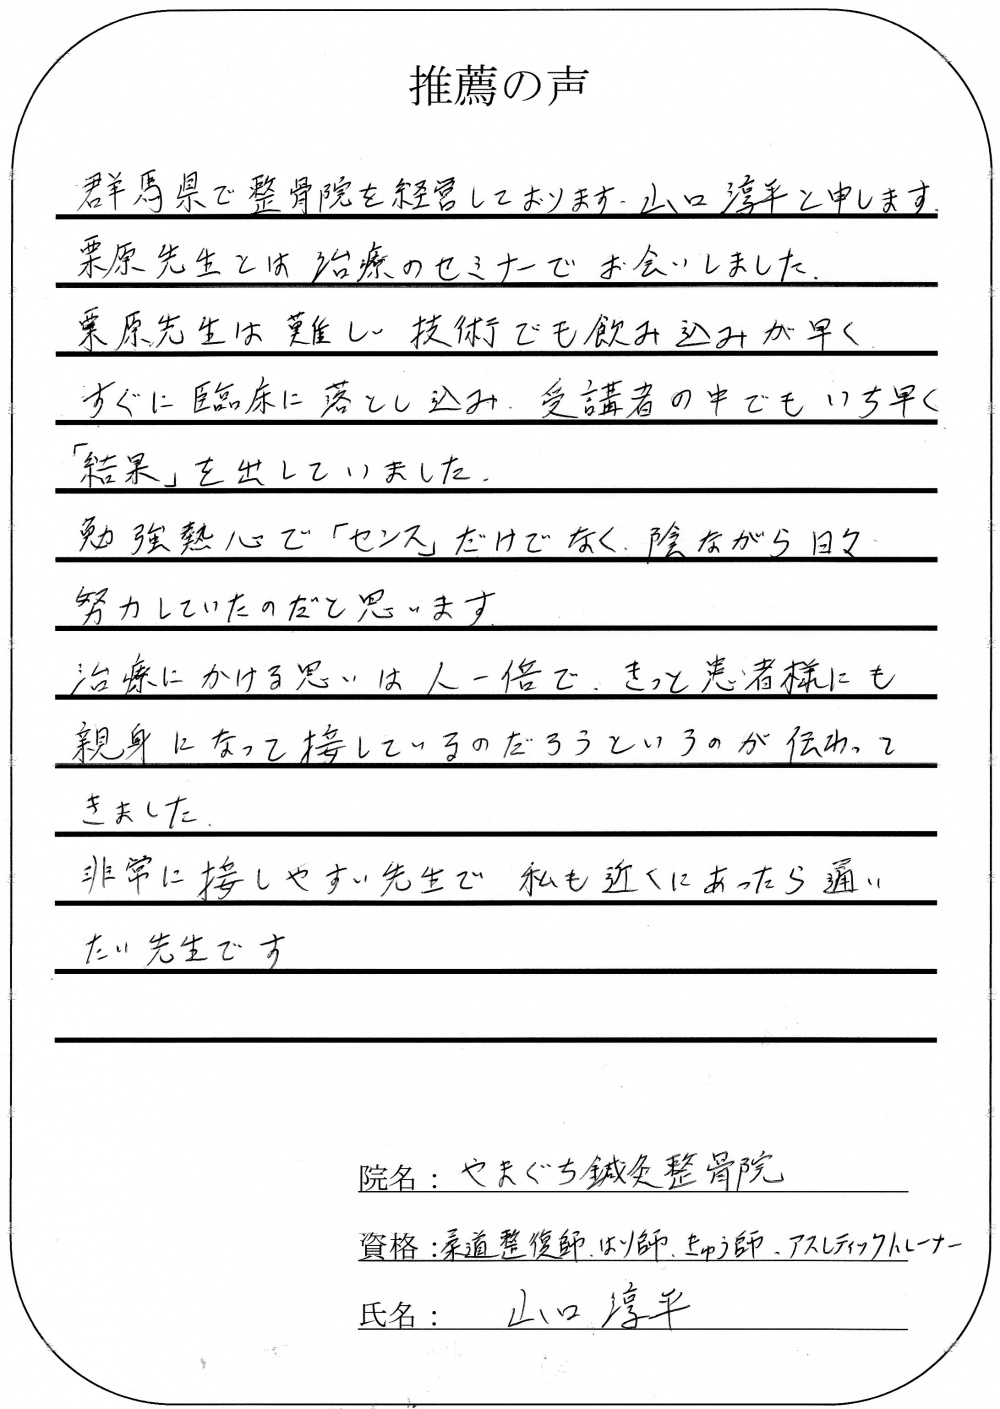 推薦の声
群馬県で整骨院を経営しております.山口淳平と申します.
栗原先生とは 治療のセミナーで お会いしました.
栗原先生は 難しい 技術でも飲み込みが早く
すぐに 臨床に 落とし込み. 受講者の中でもいち早く
「結果」を出していました.
勉強熱心で「センス」だけでなく.陰ながら日々
努力していたのだと思います
治療にかける思いは人一倍で.きっと患者様にも
親身になって接しているのだろうというのが伝わって
きました.
非常に接しやすい先生で 私も近くにあったら通い
たい先生です
院名：やまぐち鍼灸整骨院
資格：柔道整復師.はり師.きゅう師.アスレティックトレーナー
氏名： 山口 淳平